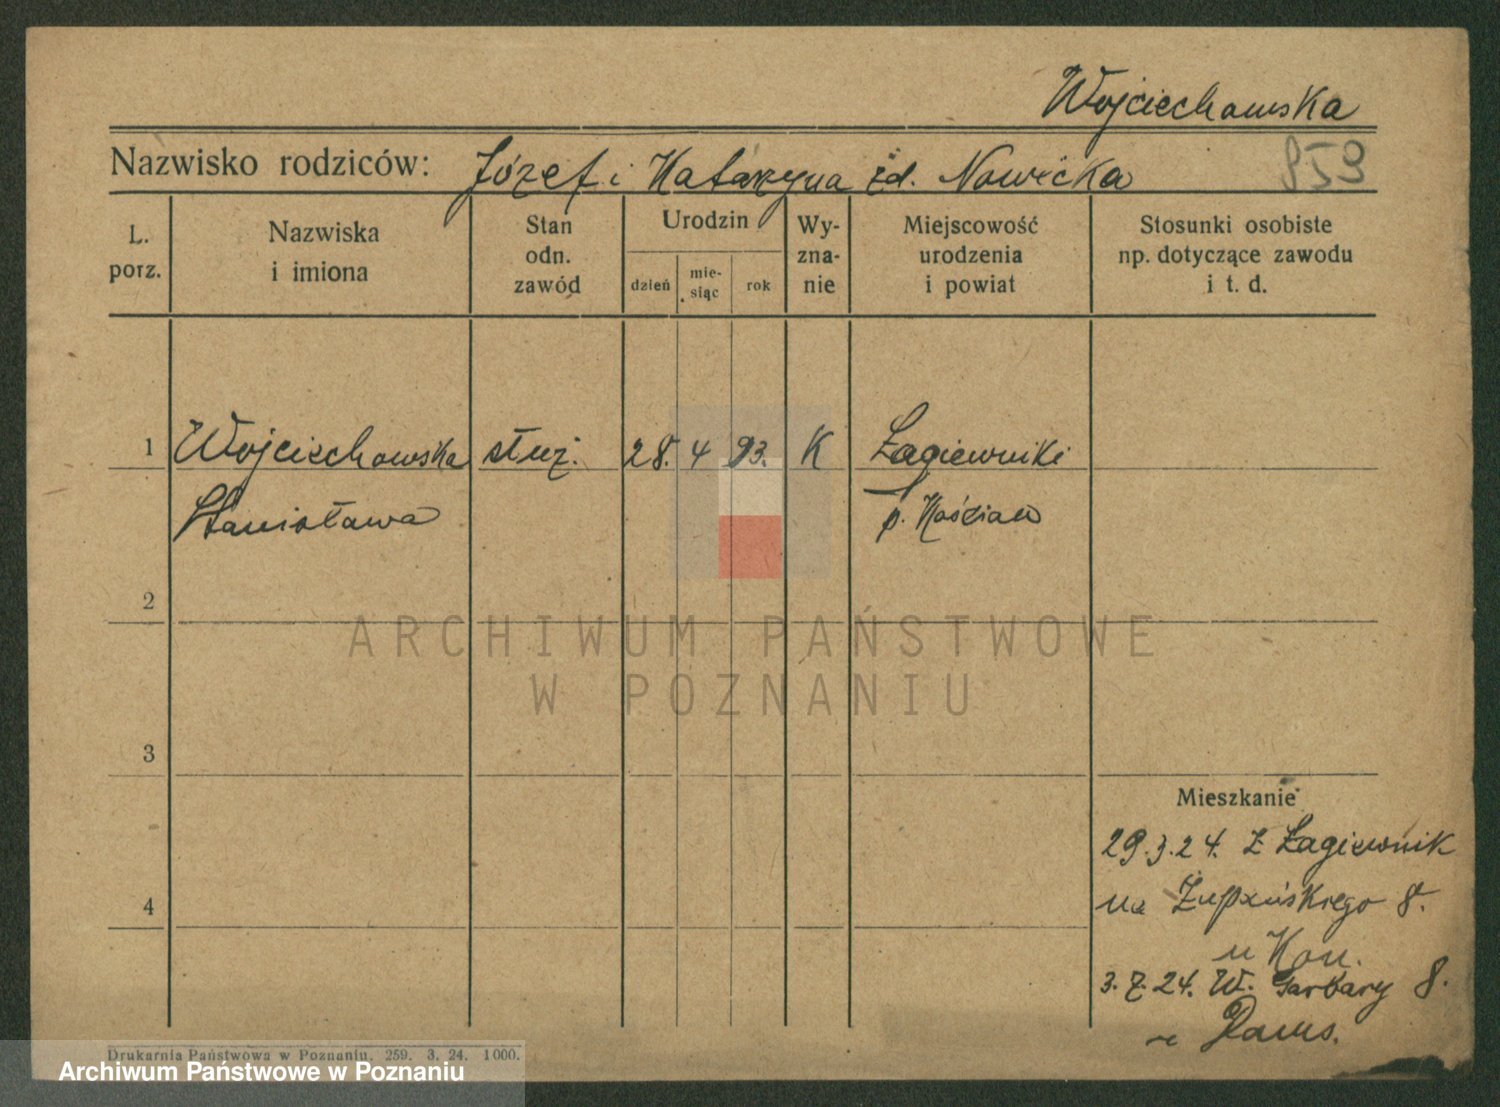 Wojciechowska
Nazwisko rodziców: Józef i Katarzyna zd. Nowicka 859
L. porz.
Nazwiska i imiona
Stan odn. zawód
Urodzin
dzień
mie-siąc
rok
Wy-zna-nie
Miejscowość urodzenia i powiat
Stosunki osobiste np. dotyczące zawodu i t. d.
1 Wojciechowska służ. 28. 4 93. K Łagiewniki
Stanisława p. Kościan
2
ARCHIWUM PAŃSTWOWE
W POZNANIU
3
Mieszkanie
29.3.24. z Łagiewnik
4
na Żupańskiego 8.
u Kon.
3.7.24. W. Garbary 8.
Drukarnia Państwowa w Poznaniu. 259. 3. 24. 1000.
Archiwum Państwowe w Poznaniu